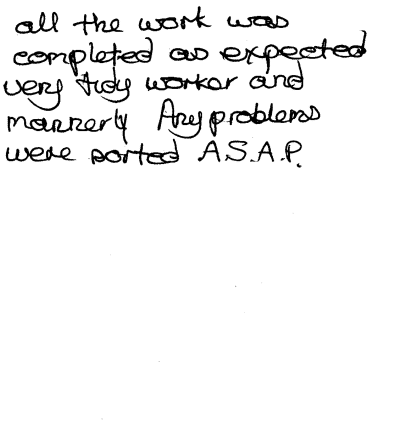 all the work was
completed as expected
very tidy worker and
mannerly Any problems
were sorted A.S.A.P.